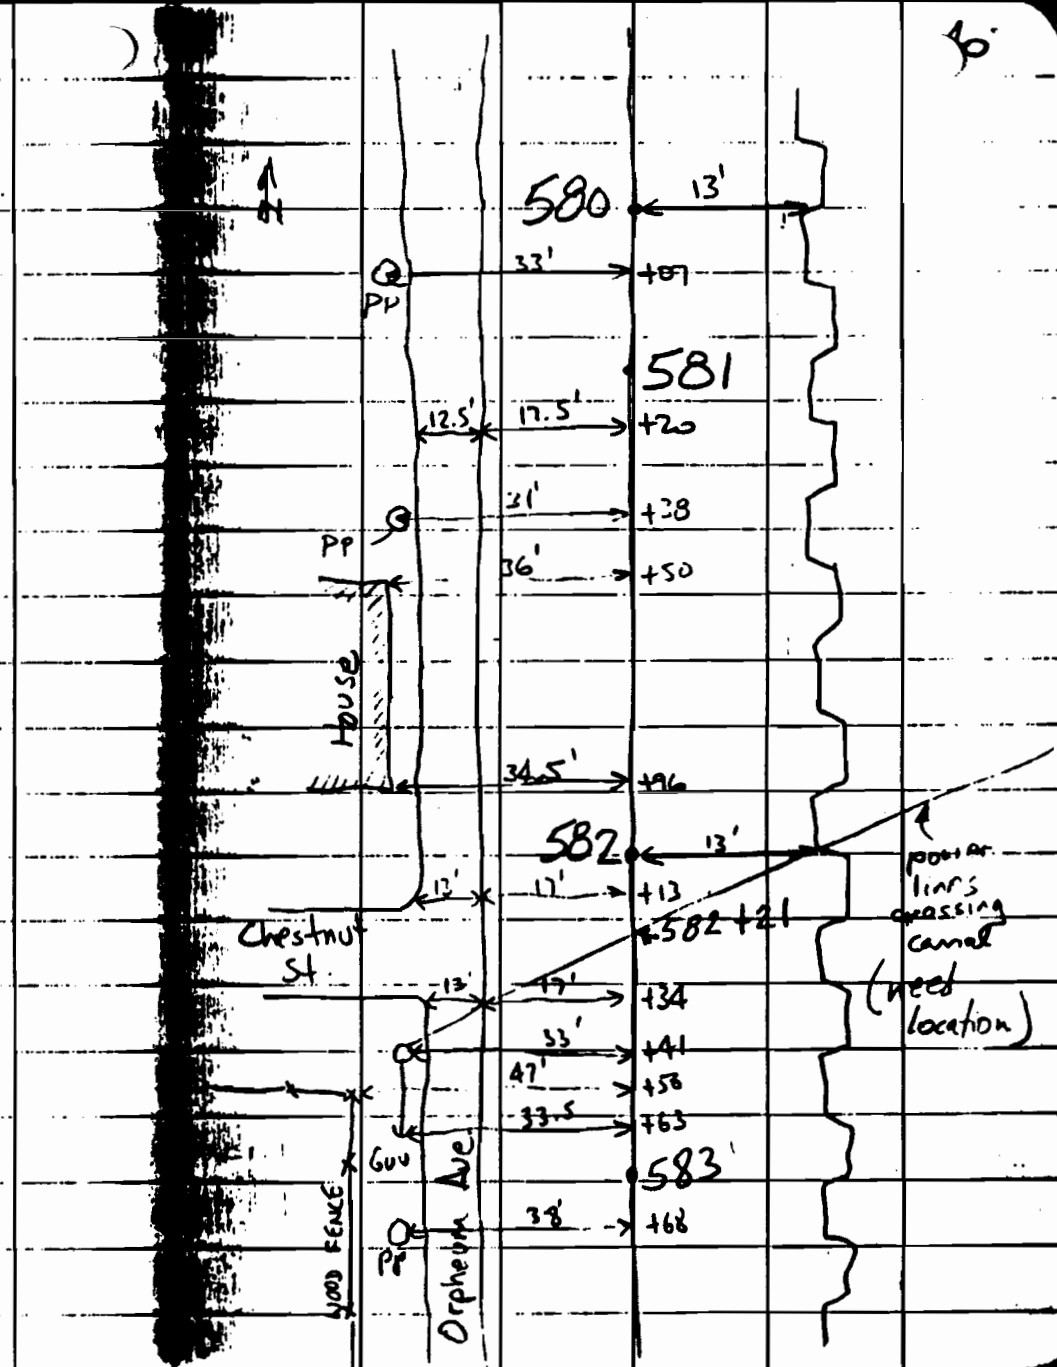 N
580 13'
33' +07
PP
581
12.5' 17.5' +20
31' +38
PP
36' +50
House
34.5' +96
582 13'
13' 17' +13
power
lines
crossing
canal
(need
location)
582+21
Chestnut
St.
13' 17' +34
33' +41
47'
33.5 +63
Guy
583
38' +68
PP
WOOD FENCE
Orpheum Ave